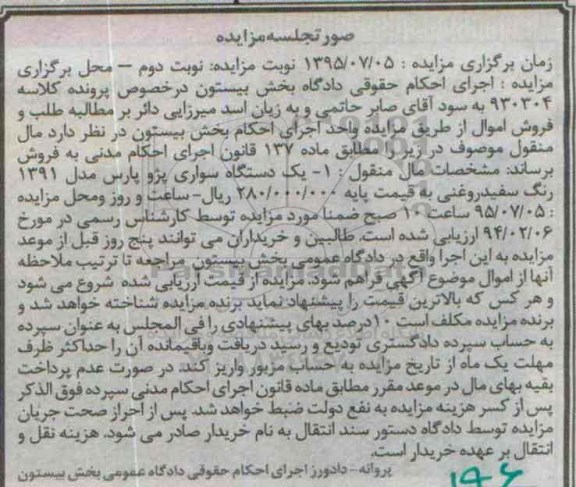 صورتجلسه مزایده
زمان برگزاری مزایده : ۱۳۹۵/۰۷/۰۵ نوبت مزایده: نوبت دوم – محل برگزاری
مزایده : اجرای احکام حقوقی دادگاه بخش بیستون درخصوص پرونده کلاسه
۹۳۰۳۰۴ به سود آقای صابر حاتمی و به زیان اسد میرزایی دائر بر مطالبه طلب و
فروش اموال از طریق مزایده واحد اجرای احکام بخش بیستون در نظر دارد مال
منقول موصوف در زیر را مطابق ماده ۱۳۷ قانون اجرای احکام مدنی به فروش
برساند: مشخصات مال منقول : ۱- یک دستگاه سواری پژو پارس مدل ۱۳۹۱
رنگ سفیدروغنی به قیمت پایه ۲۸۰/۰۰۰/۰۰۰ ریال- ساعت و روز ومحل مزایده
: ۹۵/۰۷/۰۵ ساعت ۱۰ صبح ضمنا مورد مزایده توسط کارشناس رسمی در مورخ
۹۴/۰۲/۰۶ ارزیابی شده است. طالبین و خریداران می توانند پنج روز قبل از موعد
مزایده به این اجرا واقع در دادگاه عمومی بخش بیستون مراجعه تا ترتیب ملاحظه
آنها از اموال موضوع آگهی فراهم شود. مزایده از قیمت ارزیابی شده شروع می شود
و هر کس که بالاترین قیمت را پیشنهاد نماید برنده مزایده شناخته خواهد شد و
برنده مزایده مکلف است ۱۰درصد بهای پیشنهادی را فی المجلس به عنوان سپرده
به حساب سپرده دادگستری تودیع و رسید دریافت وباقیمانده آن را حداکثر ظرف
مهلت یک ماه از تاریخ مزایده به حساب مزبور واریز کند. در صورت عدم پرداخت
بقیه بهای مال در موعد مقرر مطابق ماده قانون اجرای احکام مدنی سپرده فوق الذکر
پس از کسر هزینه مزایده به نفع دولت ضبط خواهد شد. پس از احراز صحت جریان
مزایده توسط دادگاه دستور سند انتقال به نام خریدار صادر می شود. هزینه نقل و
انتقال بر عهده خریدار است.
پروانه - دادورز اجرای احکام حقوقی دادگاه عمومی بخش بیستون
۱۹۶